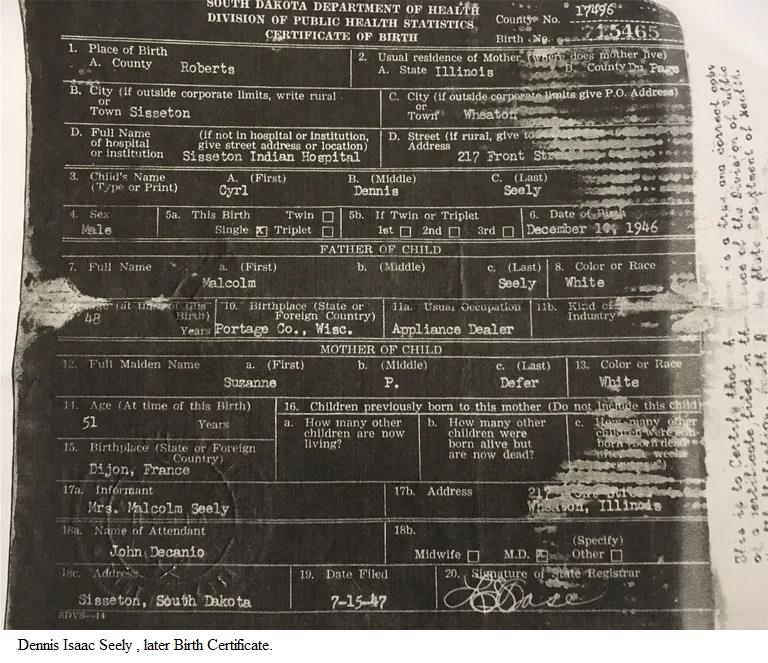 SOUTH DAKOTA DEPARTMENT OF HEALTH
DIVISION OF PUBLIC HEALTH STATISTICS
CERTIFICATE OF BIRTH
County No. 17496
Birth No. 715465
1. Place of Birth
A. County Roberts
2. Usual residence of Mother (where does mother live)
A. State Illinois B. County Du Page
B. City (If outside corporate limits, write rural
or
Town Sisseton
C. City (If outside corporate limits give P.O. Address)
or
Town Wheaton
D. Full Name of hospital or institution
(if not in hospital or institution, give street address or location)
Sisseton Indian Hospital
D. Street (If rural, give
Address
217 Front
3. Child's Name A. (First) B. (Middle) C. (Last)
(Type or Print) Cyrl Dennis Seely
4. Sex 5a. This Birth Twin 5b. If Twin or Triplet 6. Date of Birth
Male Single x Triplet 1st 2nd 3rd December 1946
FATHER OF CHILD
7. Full Name a. (First) b. (Middle) c. (Last) 8. Color or Race
Malcolm Seely White
(at time of this Birth) 10. Birthplace (State or Foreign Country) 11a. Usual Occupation 11b. Kind of Industry
48 Years Portage Co., Wisc. Appliance Dealer
MOTHER OF CHILD
12. Full Maiden Name a. (First) b. (Middle) c. (Last) 13. Color or Race
Suzanne P. Defer White
14. Age (At time of this Birth)
51 Years
16. Children previously born to this mother (Do not include this child)
a. How many other children are now living?
b. How many other children were born alive but are now dead?
c. How many other children were
15. Birthplace (State or Foreign Country)
Dijon, France
17a. Informant
Mrs. Malcolm Seely
17b. Address 217
Wheaton, Illinois
18a. Name of Attendant
John Decanio
18b.
Midwife M.D. x Other (Specify)
18c. Address
Sisseton, South Dakota
19. Date Filed
7-15-47
20. Signature of State Registrar
SDVS-14
This is to Certify that is a true and correct copy
of a certificate filed in the office of the Division of Public
State Department of Health.
Dennis Isaac Seely , later Birth Certificate.